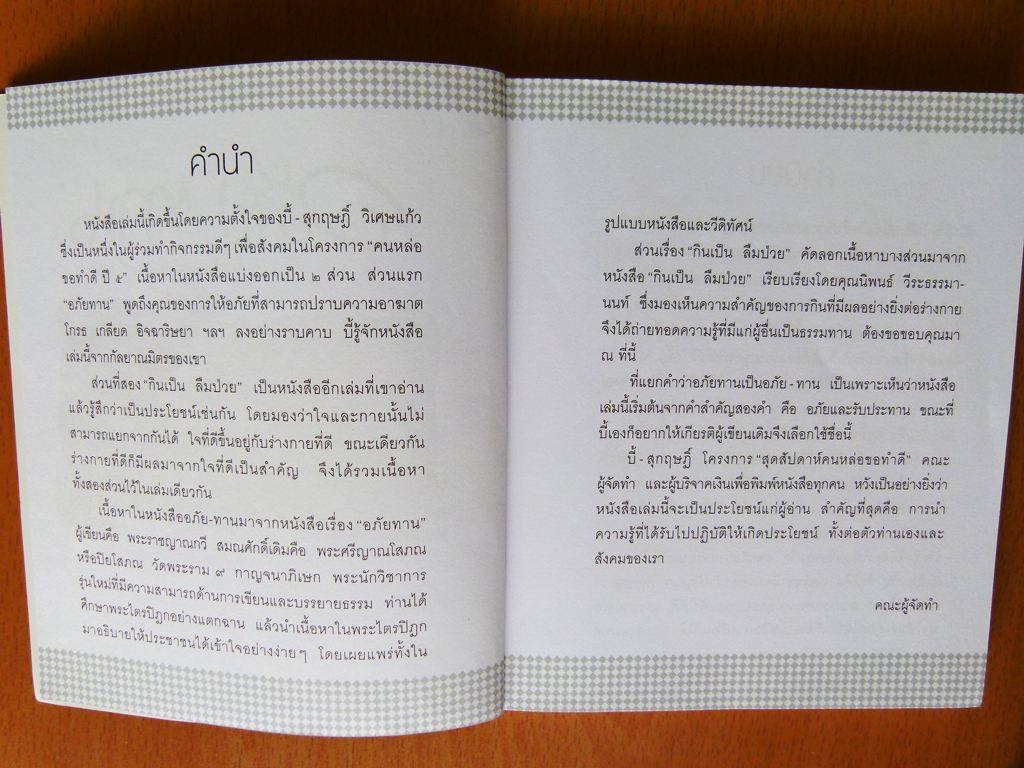 คำนำ
หนังสือเล่มนี้เกิดขึ้นโดยความตั้งใจของบี้ - สุกฤษฎิ์ วิเศษแก้ว
ซึ่งเป็นหนึ่งในผู้ร่วมทำกิจกรรมดีๆ เพื่อสังคมในโครงการ “คนหล่อ
ขอทำดี ปี ๕” เนื้อหาในหนังสือแบ่งออกเป็น ๒ ส่วน ส่วนแรก
“อภัยทาน” พูดถึงคุณของการให้อภัยที่สามารถปราบความอาฆาต
โกรธ เกลียด อิจฉาริษยา ฯลฯ ลงอย่างราบคาบ บี้รู้จักหนังสือ
เล่มนี้จากกัลยาณมิตรของเขา
ส่วนที่สอง “กินเป็น ลืมป่วย” เป็นหนังสืออีกเล่มที่เขาอ่าน
แล้วรู้สึกว่าเป็นประโยชน์เช่นกัน โดยมองว่าใจและกายนั้นไม่
สามารถแยกจากกันได้ ใจที่ดีขึ้นอยู่กับร่างกายที่ดี ขณะเดียวกัน
ร่างกายที่ดีก็มีผลมาจากใจที่ดีเป็นสำคัญ จึงได้รวมเนื้อหา
ทั้งสองส่วนไว้ในเล่มเดียวกัน
เนื้อหาในหนังสืออภัย-ทานมาจากหนังสือเรื่อง “อภัยทาน”
ผู้เขียนคือ พระราชญาณกวี สมณศักดิ์เดิมคือ พระศรีญาณโสภณ
หรือปิยโสภณ วัดพระราม ๙ กาญจนาภิเษก พระนักวิชาการ
รุ่นใหม่ที่มีความสามารถด้านการเขียนและบรรยายธรรม ท่านได้
ศึกษาพระไตรปิฎกอย่างแตกฉาน แล้วนำเนื้อหาในพระไตรปิฎก
มาอธิบายให้ประชาชนได้เข้าใจอย่างง่ายๆ โดยเผยแพร่ทั้งใน
รูปแบบหนังสือและวีดิทัศน์
ส่วนเรื่อง “กินเป็น ลืมป่วย” คัดลอกเนื้อหาบางส่วนมาจาก
หนังสือ “กินเป็น ลืมป่วย” เรียบเรียงโดยคุณนิพนธ์ วีระธรรมา-
นนท์ ซึ่งมองเห็นความสำคัญของการกินที่มีผลอย่างยิ่งต่อร่างกาย
จึงได้ถ่ายทอดความรู้ที่มีแก่ผู้อื่นเป็นธรรมทาน ต้องขอขอบคุณมา
ณ ที่นี้
ที่แยกคำว่าอภัยทานเป็นอภัย - ทาน เป็นเพราะเห็นว่าหนังสือ
เล่มนี้เริ่มต้นจากคำสำคัญสองคำ คือ อภัยและรับประทาน ขณะที่
บี้เองก็อยากให้เกียรติผู้เขียนเดิมจึงเลือกใช้ชื่อนี้
บี้ - สุกฤษฎิ์ โครงการ “สุดสัปดาห์คนหล่อขอทำดี” คณะ
ผู้จัดทำ และผู้บริจาคเงินเพื่อพิมพ์หนังสือทุกคน หวังเป็นอย่างยิ่งว่า
หนังสือเล่มนี้จะเป็นประโยชน์แก่ผู้อ่าน สำคัญที่สุดคือ การนำ
ความรู้ที่ได้รับไปปฏิบัติให้เกิดประโยชน์ ทั้งต่อตัวท่านเองและ
สังคมของเรา
คณะผู้จัดทำ